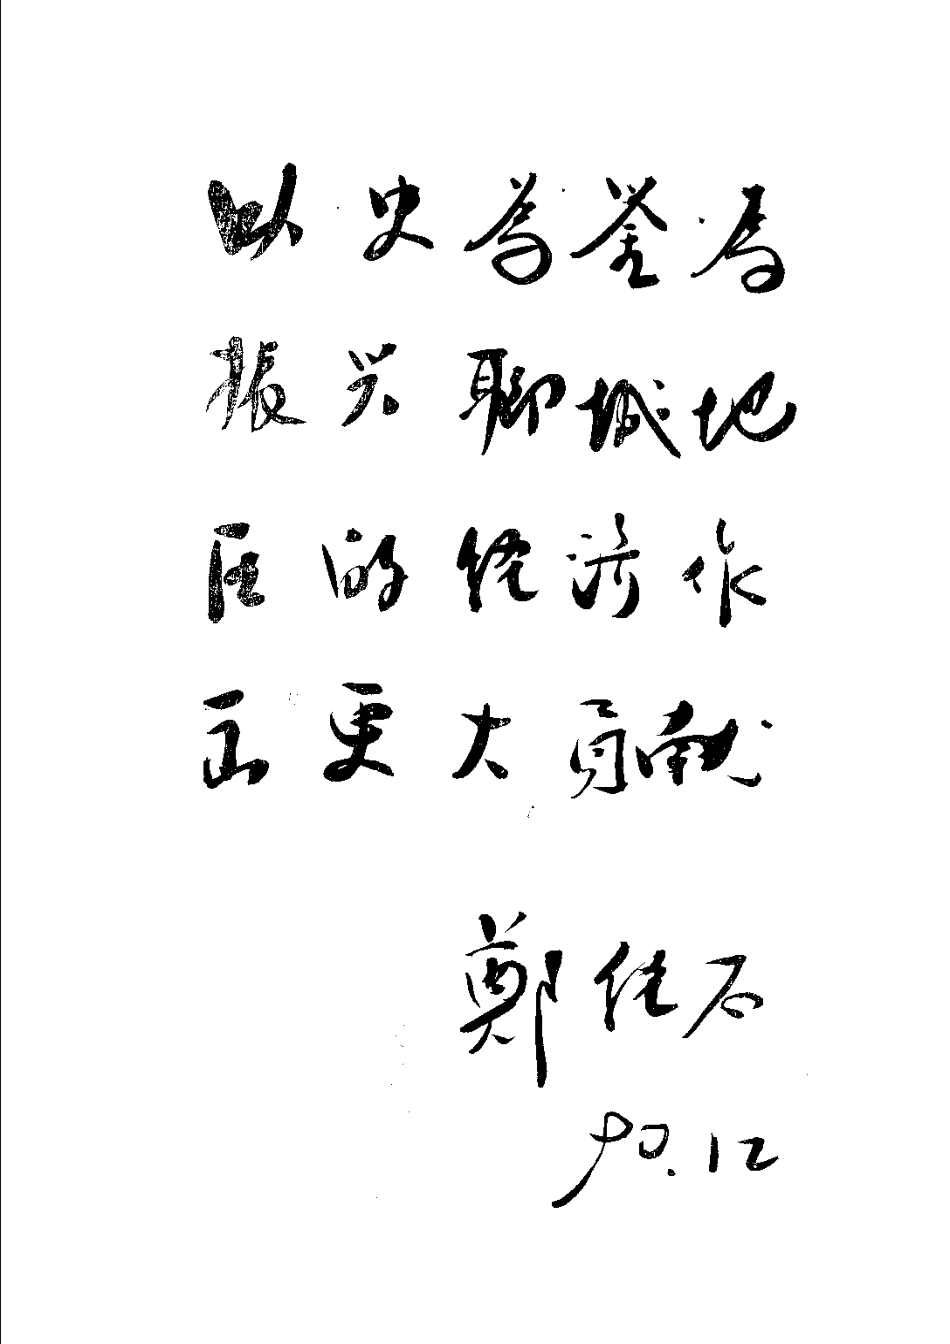 以史为鉴为
振兴聊城地
区的经济作
出更大贡献
鄭 石
90.12